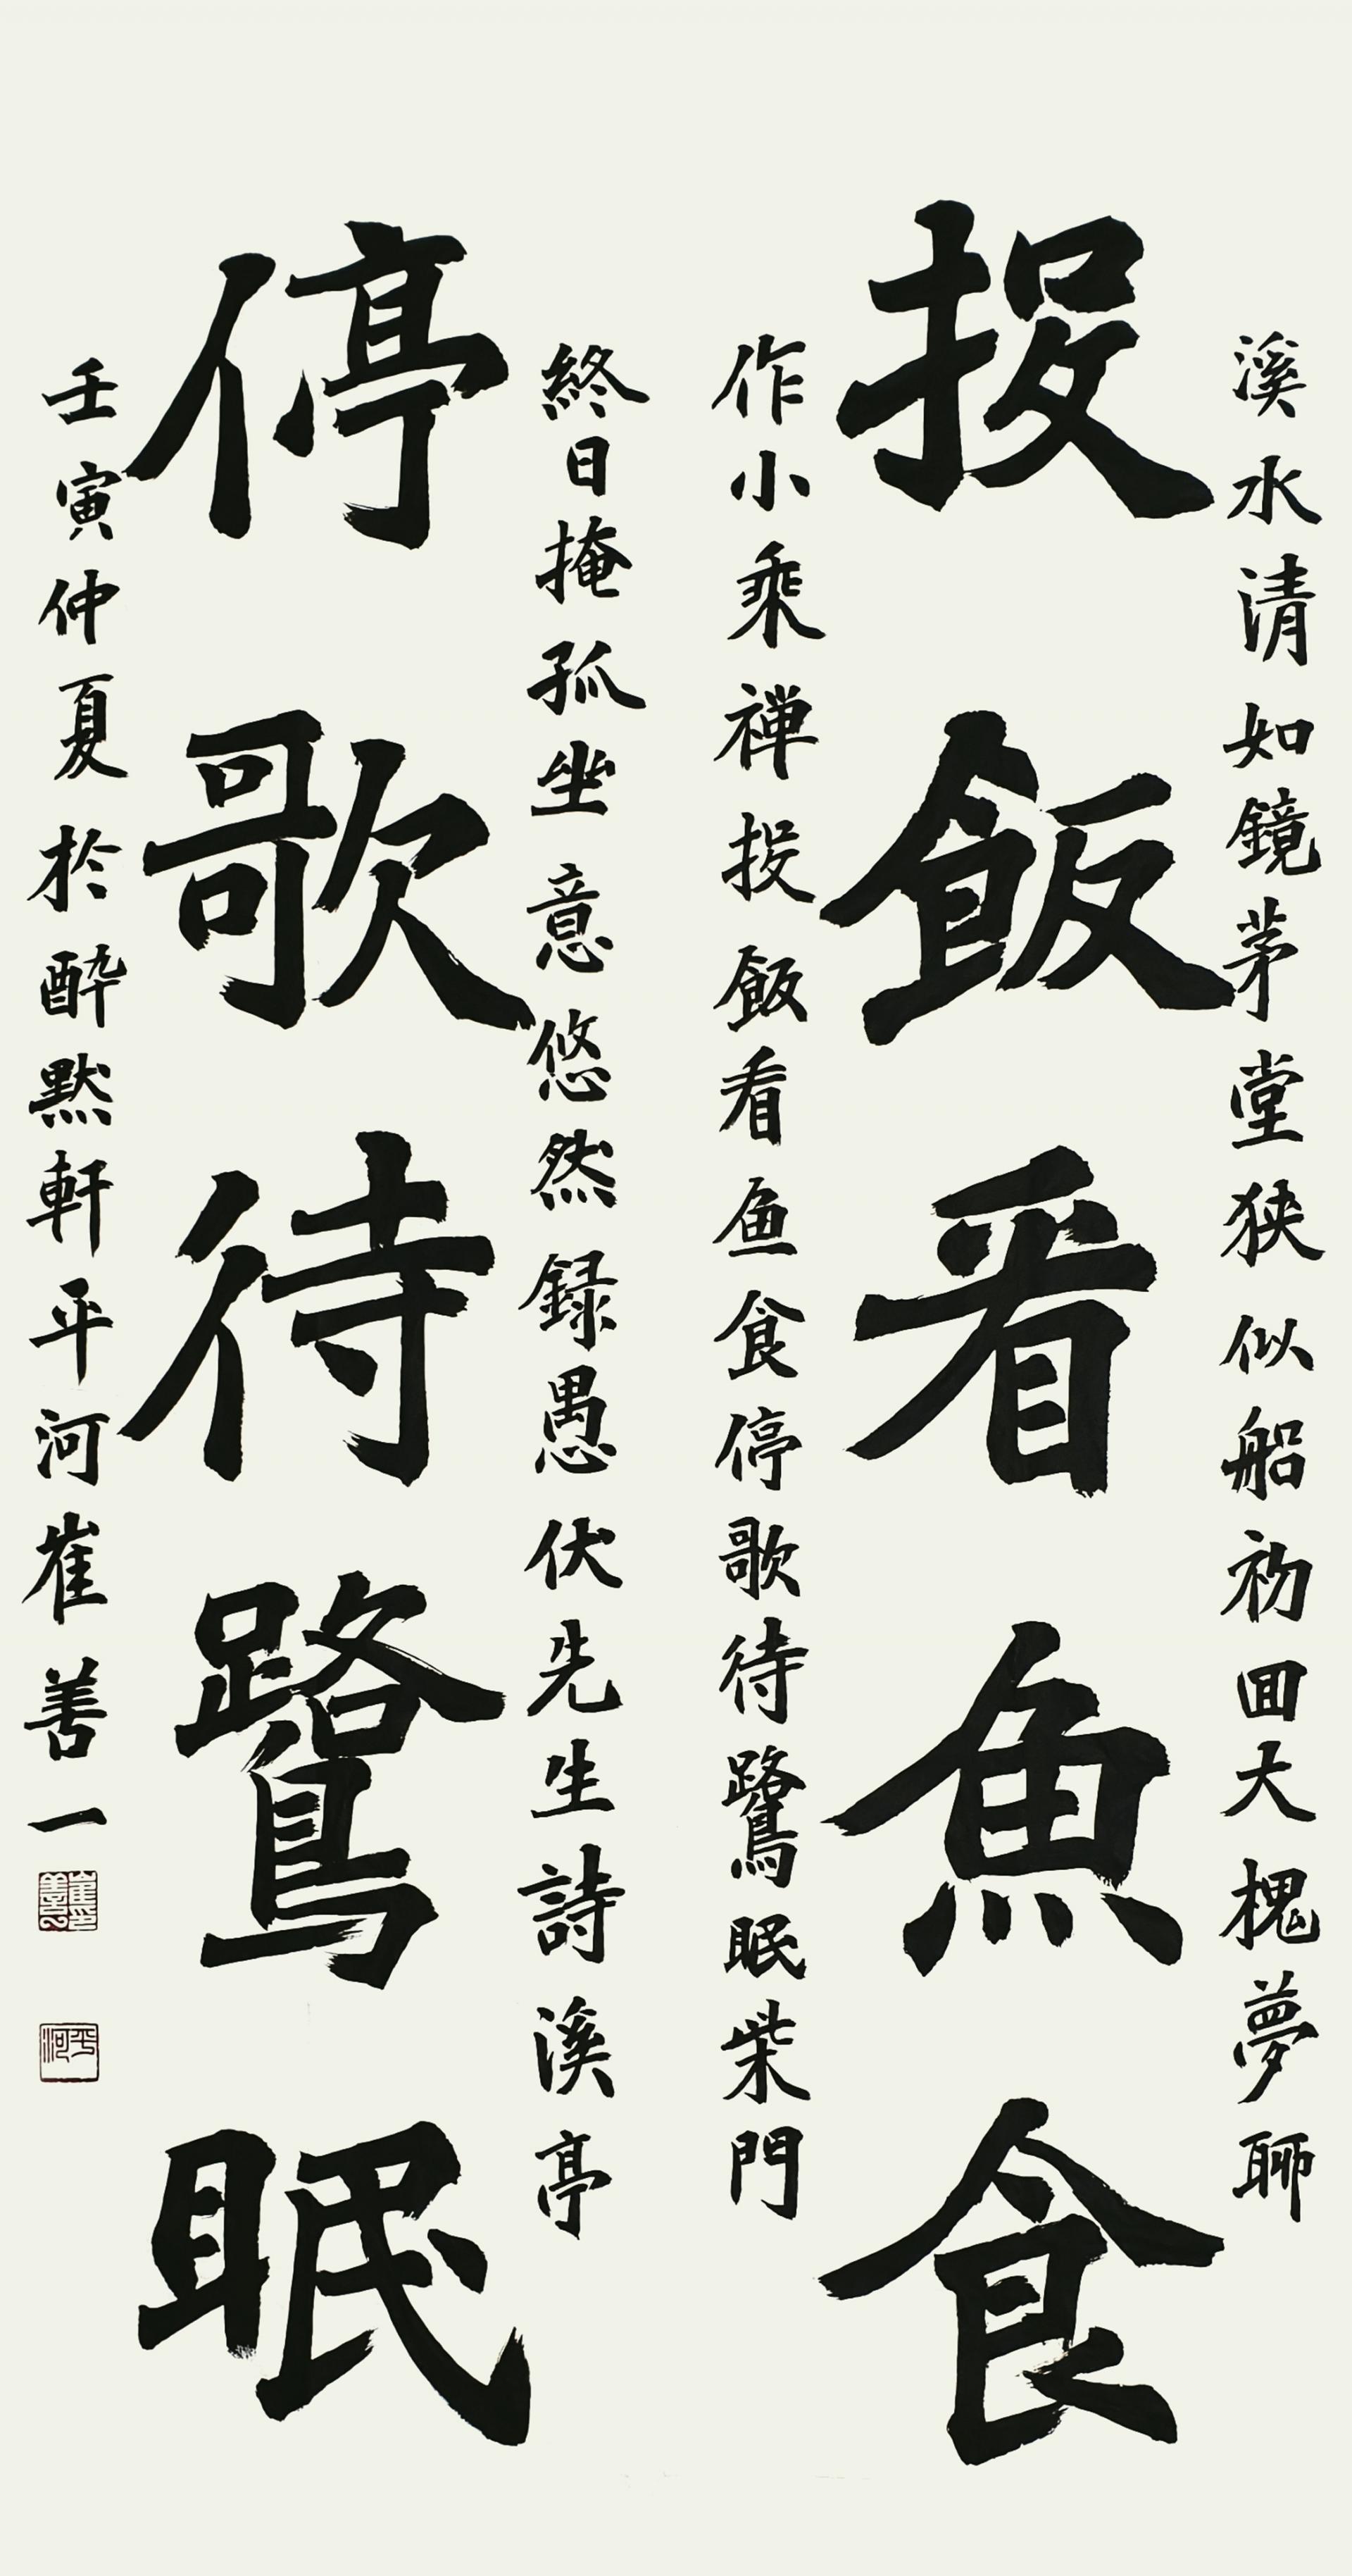 溪水清如鏡茅堂狹似船初回大槐夢聊
投飯看魚食
作小乘禅投飯看鱼食停歌待鷺眠柴門
終日掩孤坐意悠然録愚伏先生詩溪亭
停歌待鷺眠
壬寅仲夏於酔黙軒平河崔善一
崔善一印
平河